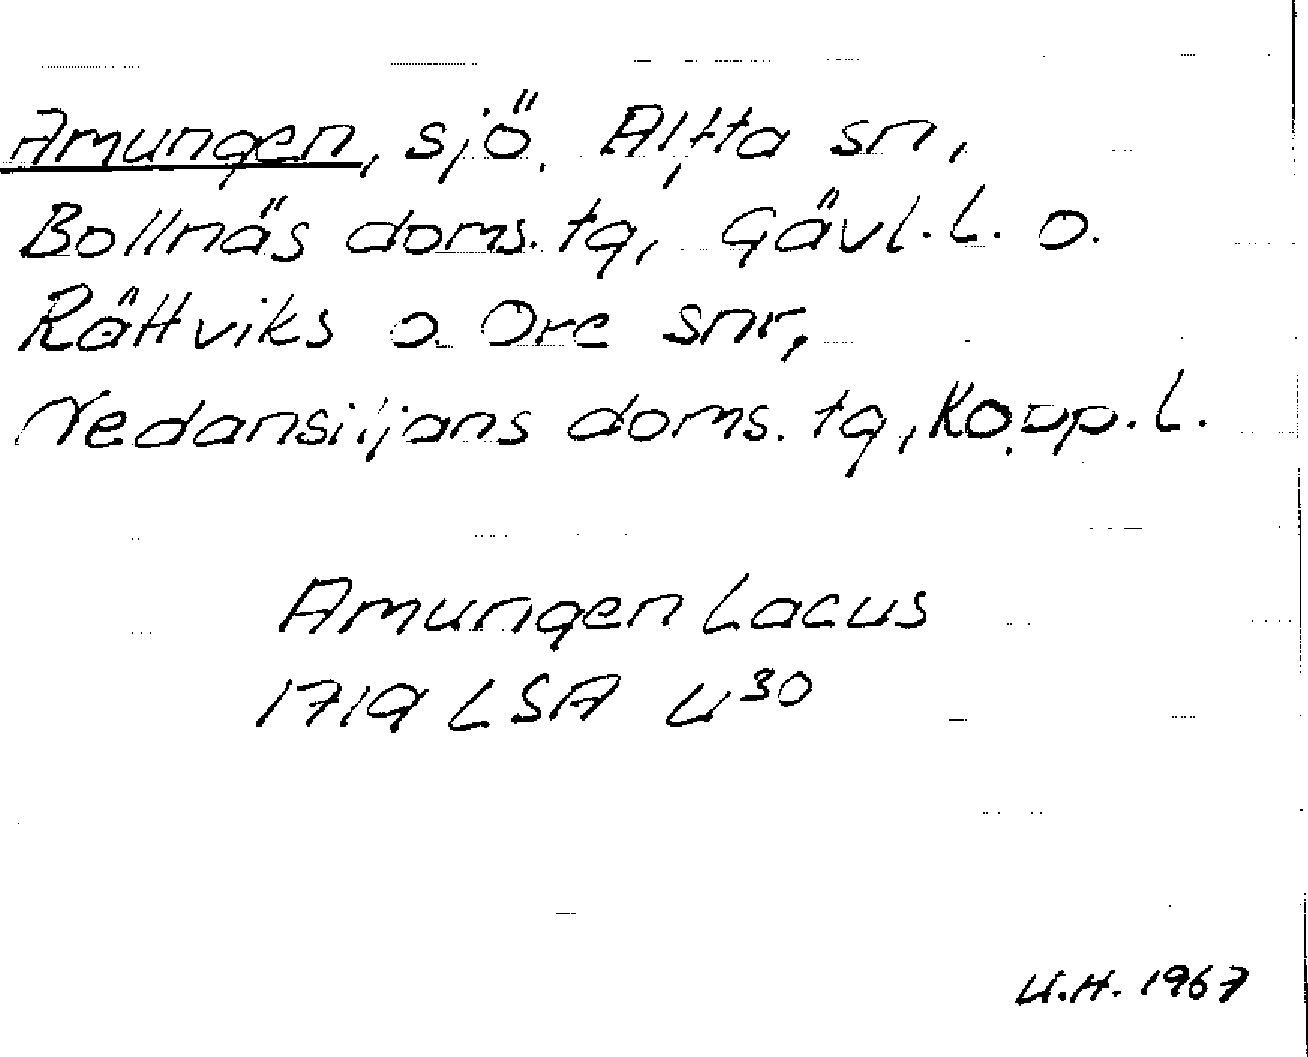 Amungen, sjö. Alfta sn,
Bollnäs doms. tg, Gävl. L. o.
Rättviks o. Ore snr,
Nedansiljans doms. tg, Kopp. L.
Amungen Lacus
1719 LSA U³⁰
U.H. 1967